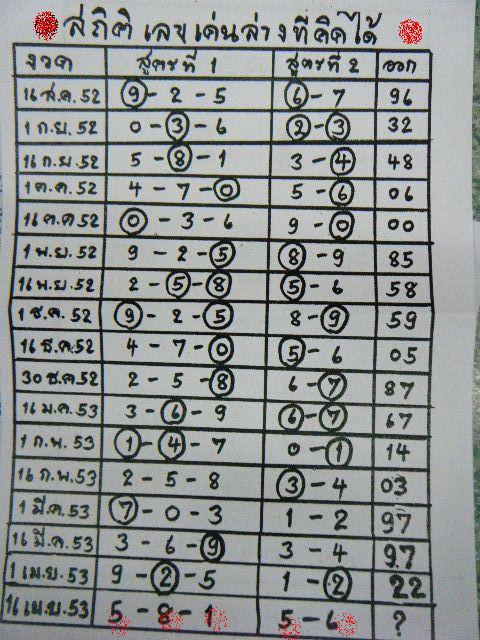 สถิติ เลขเด่นล่างที่คิดได้
งวด สูตรที่ 1 สูตรที่ 2 ออก
16 ส.ค. 52 9 - 2 - 5 6 - 7 96
1 ก.ย. 52 0 - 3 - 6 2 - 3 32
16 ก.ย. 52 5 - 8 - 1 3 - 4 48
1 ต.ค. 52 4 - 7 - 0 5 - 6 06
16 ต.ค 52 0 - 3 - 6 9 - 0 00
1 พ.ย. 52 9 - 2 - 5 8 - 9 85
16 พ.ย. 52 2 - 5 - 8 5 - 6 58
1 ธ.ค. 52 9 - 2 - 5 8 - 9 59
16 ธ.ค. 52 4 - 7 - 0 5 - 6 05
30 ธ.ค. 52 2 - 5 - 8 6 - 7 87
16 ม.ค. 53 3 - 6 - 9 6 - 7 67
1 ก.พ. 53 1 - 4 - 7 0 - 1 14
16 ก.พ. 53 2 - 5 - 8 3 - 4 03
1 มี.ค. 53 7 - 0 - 3 1 - 2 97
16 มี.ค. 53 3 - 6 - 9 3 - 4 97
1 เม.ย. 53 9 - 2 - 5 1 - 2 22
16 เม.ย. 53 5 - 8 - 1 5 - 6 ?